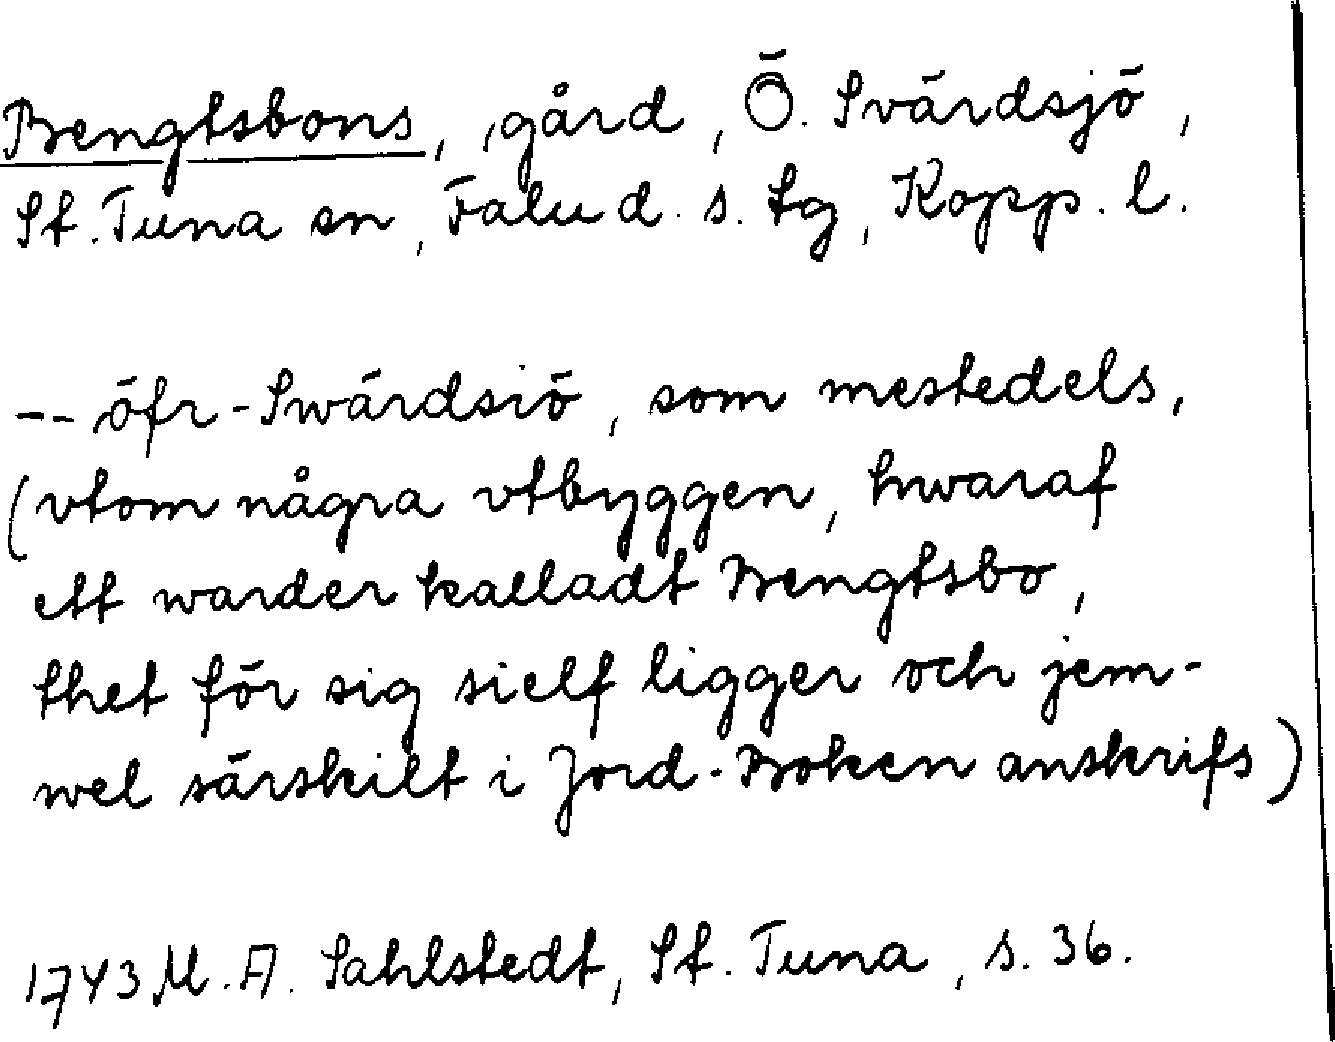 Bengtsbons, gård, Ö. Svärdsjö,
St. Tuna sn, Falu d. s. tg, Kopp. l.
-- öfr-Swärdsiö, som mestedels,
(vtom några vtbyggen, hwaraf
ett warder kalladt Bengtsbo,
thet för sig sielf ligger och jem-
wel särskilt i Jord-Boken anskrifs)
1743 M. A. Sahlstedt, St. Tuna, s. 36.